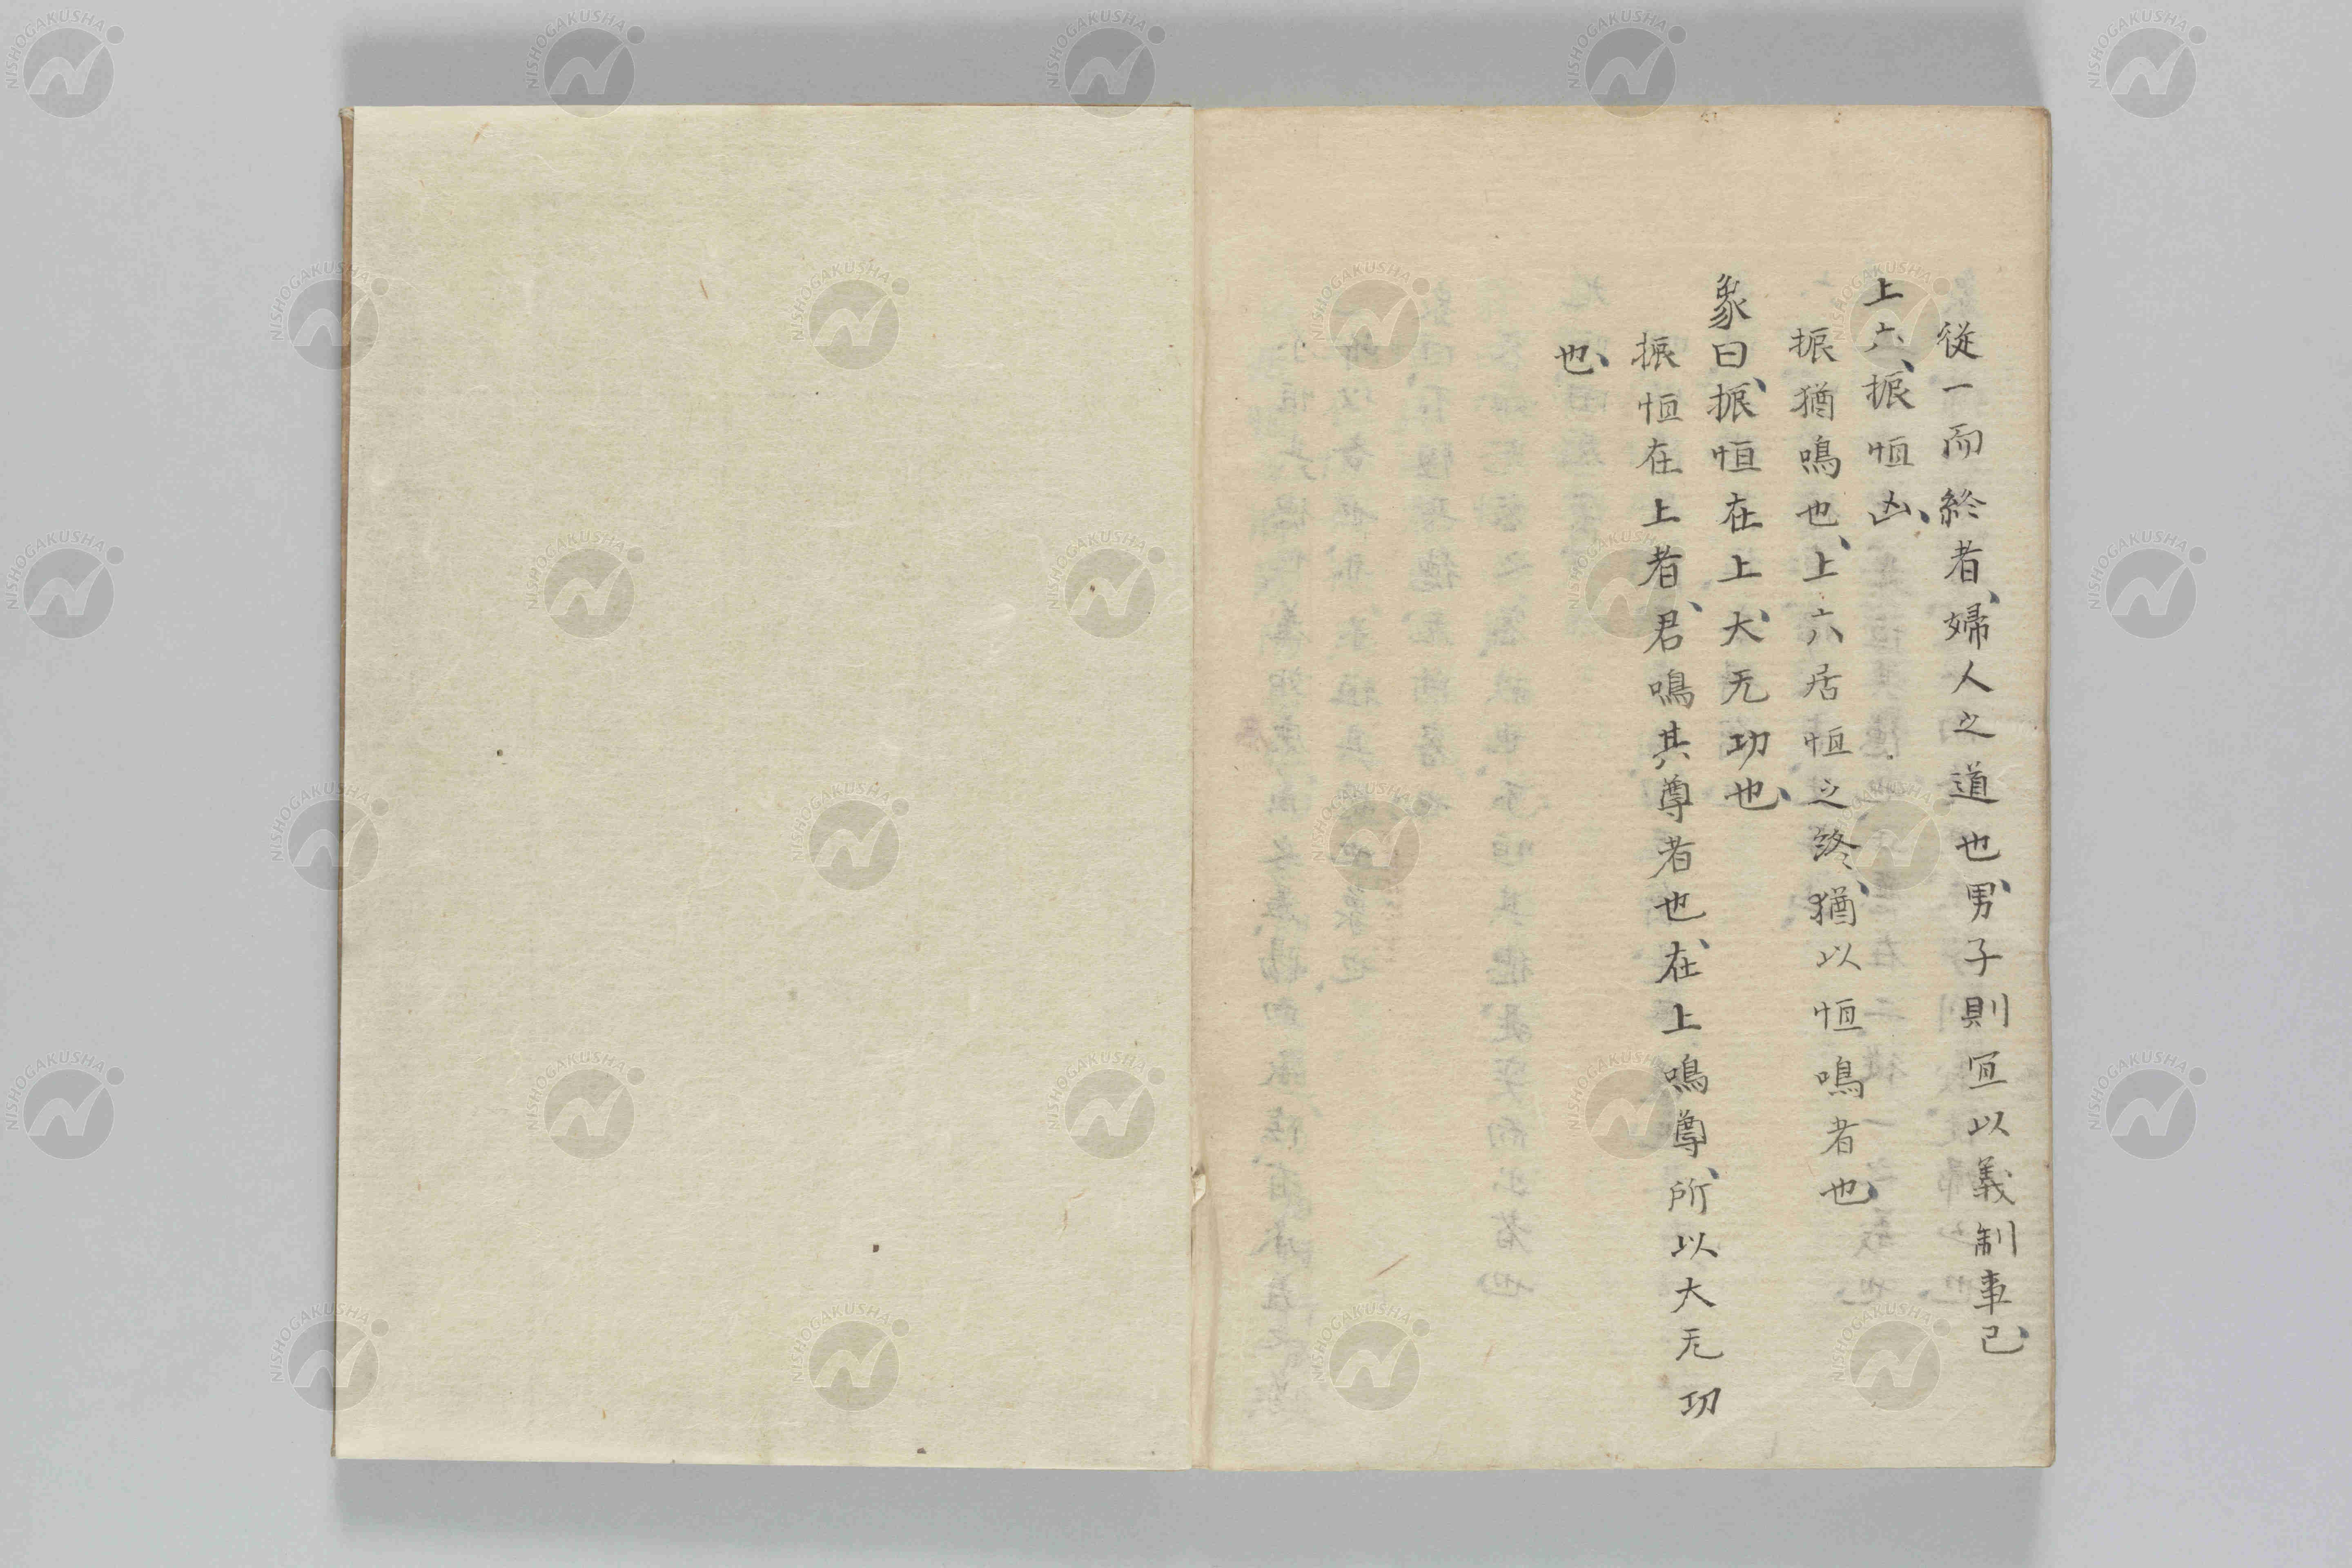 從一而終者、婦人之道也、男子則宜以義制事已、
上六、振恒凶、
振猶鳴也、上六居恒之終、猶以恒鳴者也、
象曰、振恒在上、大无功也、
振恒在上者、君鳴其尊者也、在上鳴尊、所以大无功
也、